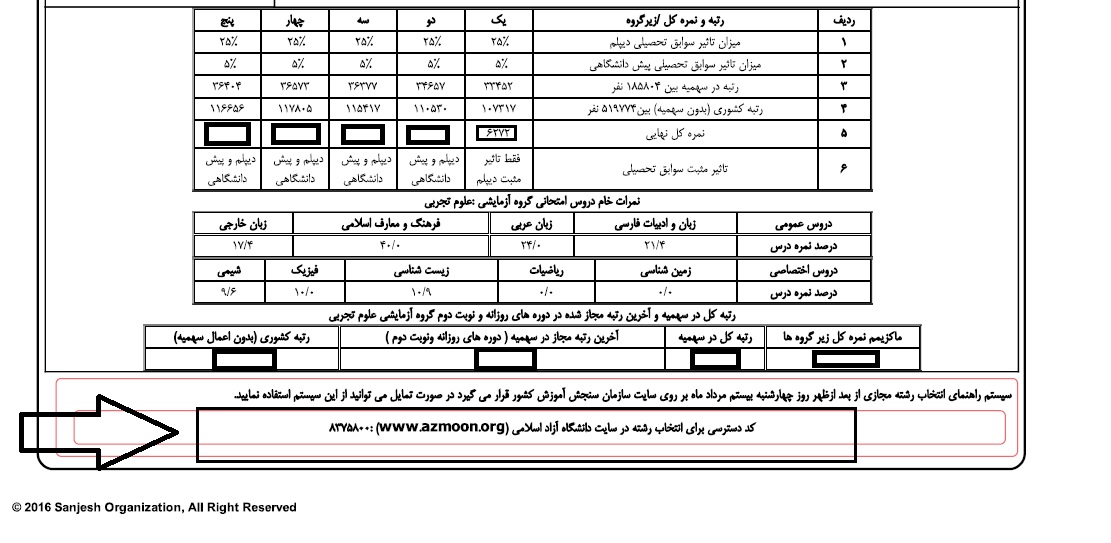 ردیف رتبه و نمره کل /زیرگروه یک دو سه چهار پنج
۱ میزان تاثیر سوابق تحصیلی دیپلم ۲۵٪ ۲۵٪ ۲۵٪ ۲۵٪ ۲۵٪
۲ میزان تاثیر سوابق تحصیلی پیش دانشگاهی ۵٪ ۵٪ ۵٪ ۵٪ ۵٪
۳ رتبه در سهمیه بین ۱۸۵۸۰۴ نفر ۳۳۴۵۲ ۳۴۶۵۷ ۳۶۳۷۷ ۳۶۵۷۳ ۳۶۴۰۴
۴ رتبه کشوری (بدون سهمیه) بین۵۱۹۷۷۴ نفر ۱۰۷۳۱۷ ۱۱۰۵۳۰ ۱۱۵۴۱۷ ۱۱۷۸۰۵ ۱۱۶۶۵۶
۵ نمره کل نهایی ۶۲۷۲
۶ تاثیر مثبت سوابق تحصیلی فقط تاثیر مثبت دیپلم دیپلم و پیش دانشگاهی دیپلم و پیش دانشگاهی دیپلم و پیش دانشگاهی دیپلم و پیش دانشگاهی
نمرات خام دروس امتحانی گروه آزمایشی :علوم تجربی
دروس عمومی زبان و ادبیات فارسی زبان عربی فرهنگ و معارف اسلامی زبان خارجی
درصد نمره درس ۲۱/۴ ۲۴/۰ ۴۰/۰ ۱۷/۴
دروس اختصاصی زمین شناسی ریاضیات زیست شناسی فیزیک شیمی
درصد نمره درس ۰/۰ ۰/۰ ۱۰/۹ ۱۰/۰ ۹/۶
رتبه کل در سهمیه و آخرین رتبه مجاز شده در دوره های روزانه و نوبت دوم گروه آزمایشی علوم تجربی
ماکزیمم نمره کل زیر گروه ها رتبه کل در سهمیه آخرین رتبه مجاز در سهمیه ( دوره های روزانه ونوبت دوم ) رتبه کشوری (بدون اعمال سهمیه)
سیستم راهنمای انتخاب رشته مجازی از بعد ازظهر روز چهارشنبه بیستم مرداد ماه بر روی سایت سازمان سنجش آموزش کشور قرار می گیرد در صورت تمایل می توانید از این سیستم استفاده نمایید.
کد دسترسی برای انتخاب رشته در سایت دانشگاه آزاد اسلامی (www.azmoon.org) :۸۳۷۵۸۰۰
© 2016 Sanjesh Organization, All Right Reserved